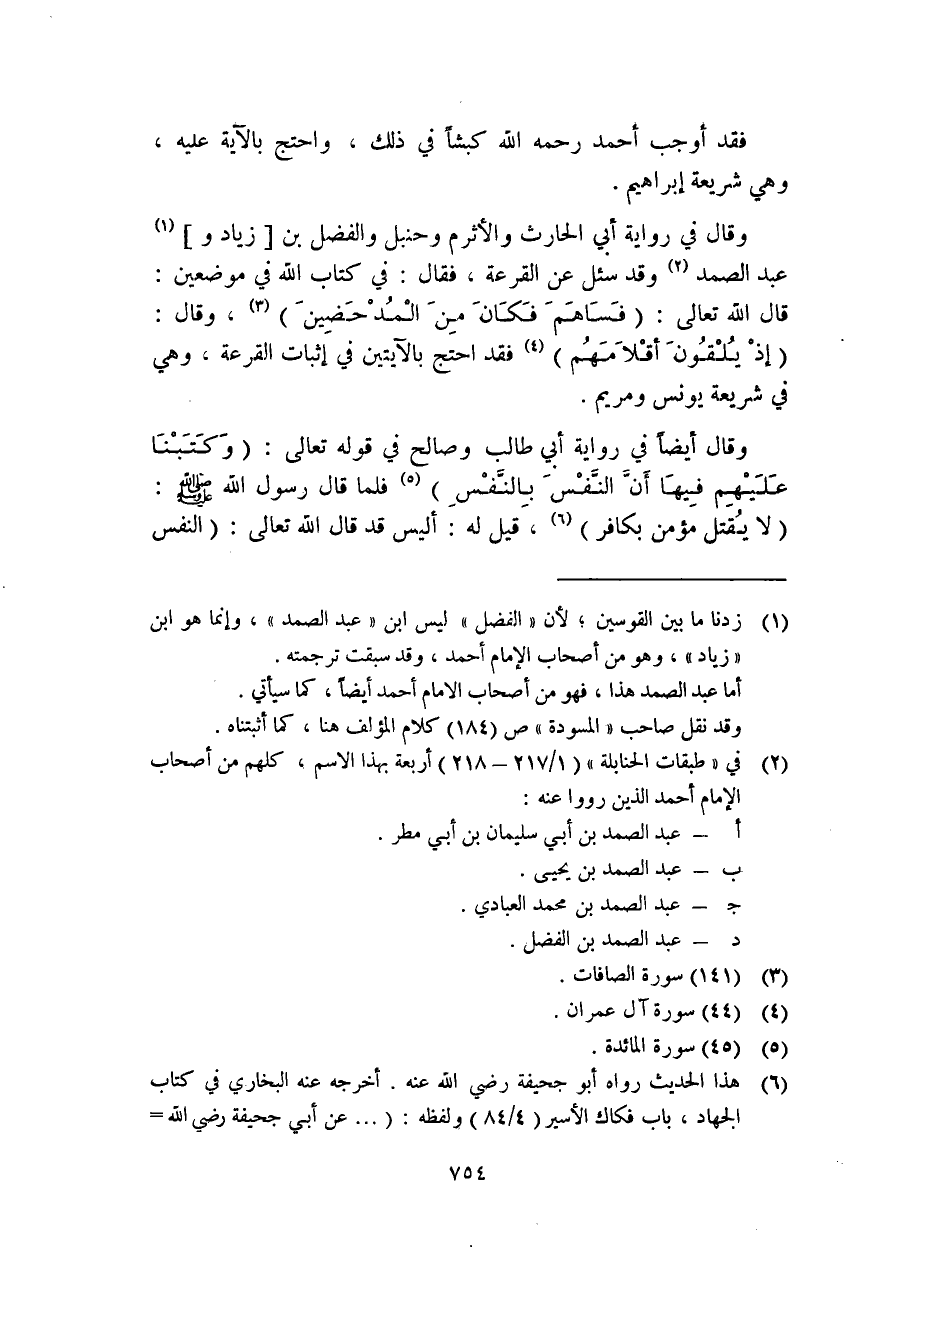 فقد أوجب أحمد رحمه الله كبشاً في ذلك ، واحتج بالآية عليه ،
وهي شريعة إبراهيم .
وقال في رواية أبي الحارث والأثرم وحنبل والفضل بن [ زياد و ] (١)
عبد الصمد (٢) وقد سئل عن القرعة ، فقال : في كتاب الله في موضعين :
قال الله تعالى : ( فَسَاهَمَ فَكَانَ مِنَ الْمُدْحَضِينَ ) (٣) ، وقال :
( إذْ يُلْقُونَ أَقْلاَمَهُم ) (٤) فقد احتج بالآيتين في إثبات القرعة ، وهي
في شريعة يونس ومريم .
وقال أيضاً في رواية أبي طالب وصالح في قوله تعالى : ( وَكَتَبْنَا
عَلَيْهِم فِيهَا أَنَّ النَّفْسَ بِالنَّفْسِ ) (٥) فلما قال رسول الله ﷺ :
( لا يُقتل مؤمن بكافر ) (٦) ، قيل له : أليس قد قال الله تعالى : ( النفس
(١) زدنا ما بين القوسين ؛ لأن « الفضل » ليس ابن « عبد الصمد » ، وإنما هو ابن
« زياد » ، وهو من أصحاب الإمام أحمد ، وقد سبقت ترجمته .
أما عبد الصمد هذا ، فهو من أصحاب الامام أحمد أيضاً ، كما سيأتي .
وقد نقل صاحب « المسودة » ص (١٨٤) كلام المؤلف هنا ، كما أثبتناه .
(٢) في « طبقات الحنابلة » ( ٢١٧/١ – ٢١٨ ) أربعة بهذا الاسم ، كلهم من أصحاب
الإمام أحمد الذين رووا عنه :
أ – عبد الصمد بن أبي سليمان بن أبي مطر .
ب – عبد الصمد بن يحيى .
جـ – عبد الصمد بن محمد العبادي .
د – عبد الصمد بن الفضل .
(٣) (١٤١) سورة الصافات .
(٤) (٤٤) سورة آل عمران .
(٥) (٤٥) سورة المائدة .
(٦) هذا الحديث رواه أبو جحيفة رضي الله عنه . أخرجه عنه البخاري في كتاب
الجهاد ، باب فكاك الأسير ( ٨٤/٤ ) ولفظه : ( ... عن أبي جحيفة رضي الله =
٧٥٤